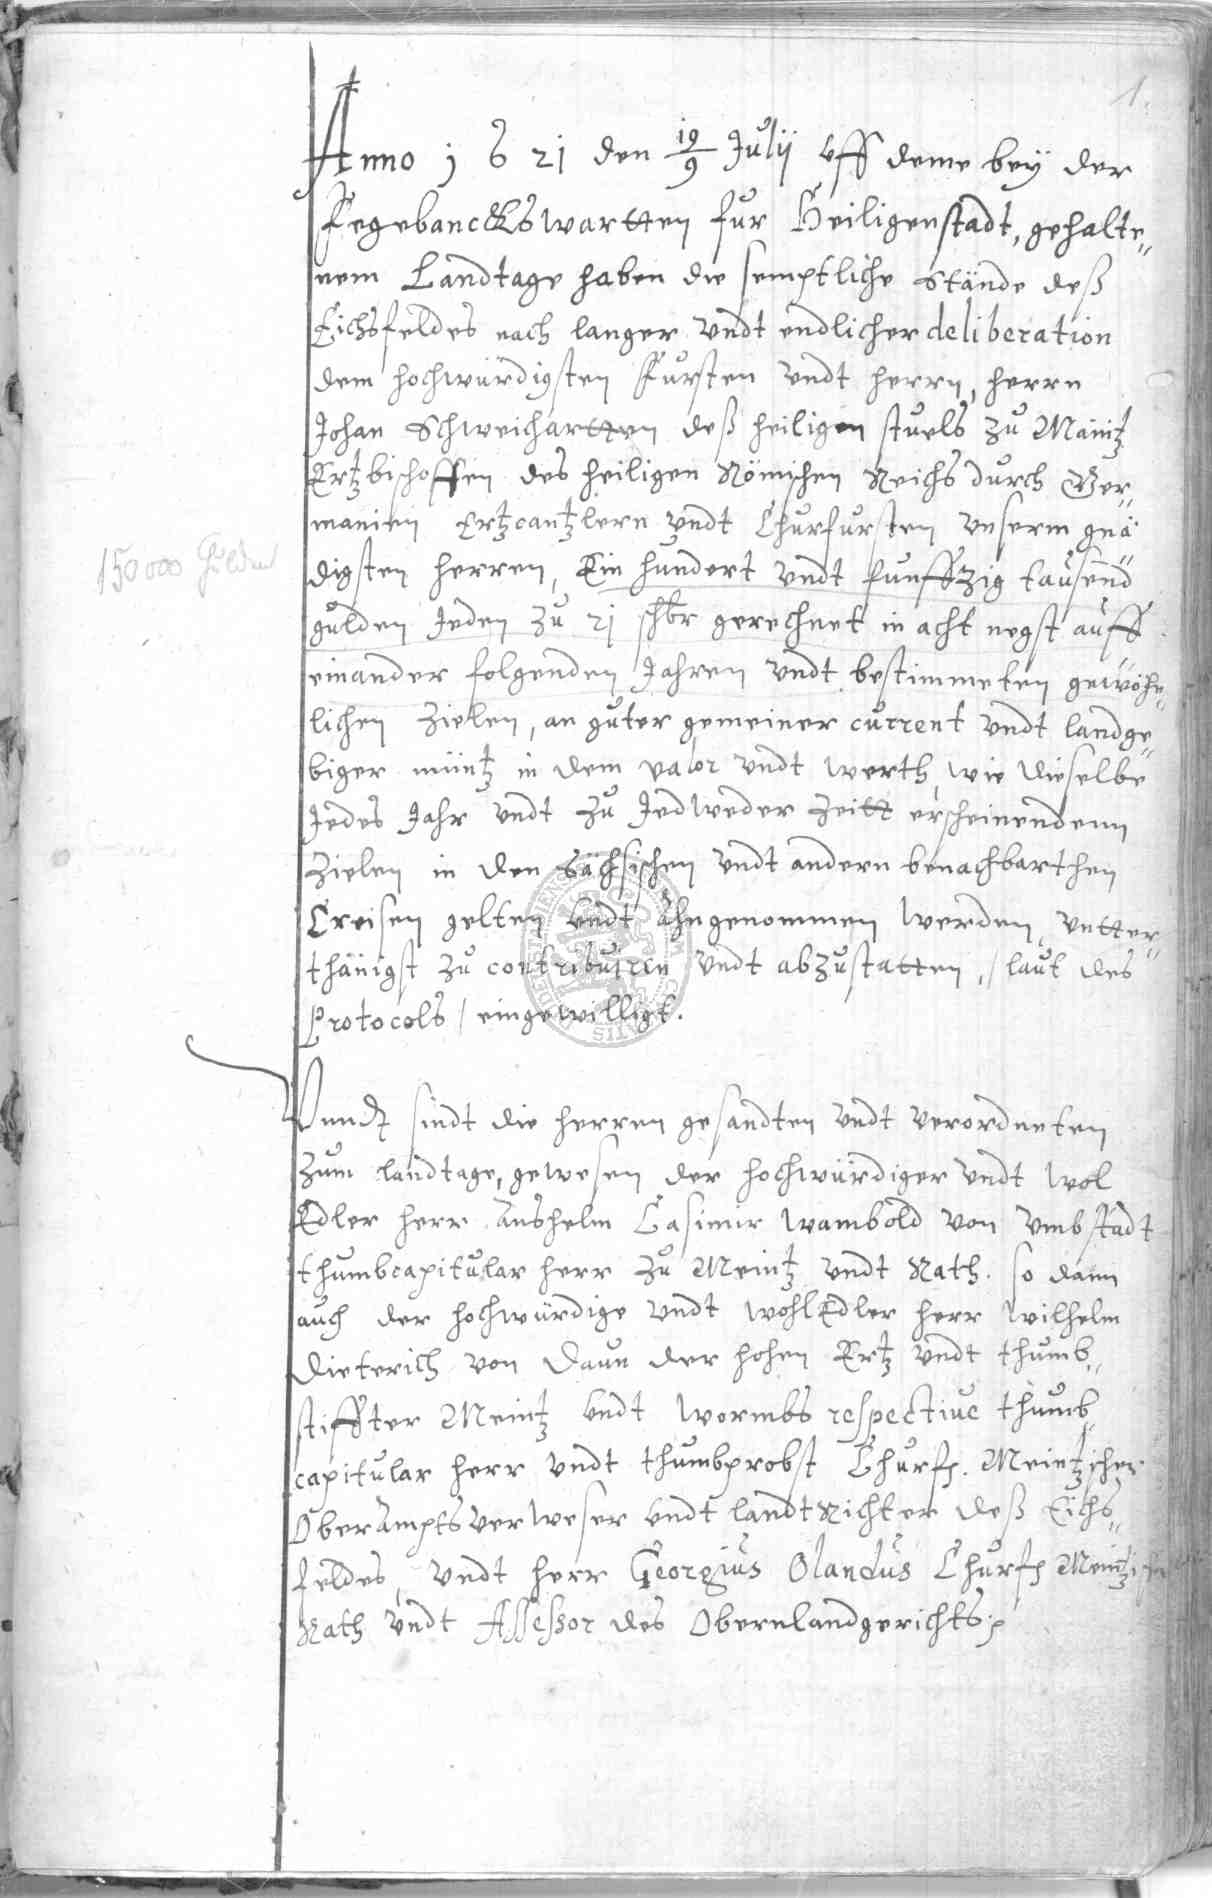 1.
Anno 1621 den 19/9 Julij vff deme beÿ der
Fegebanckswartten fur Heiligenstadt, gehalte„
nem Landtage haben die semptliche Stände deß
Eichsfeldes nach langer vndt endlicher deliberation
dem hochwürdigsten Fursten vndt herrn, herrn
Johan Schweichartten deß heiligen stuels zu Mäintz
Ertzbischoffen des heiligen Römischen Reichs durch Ger„
manien Ertzcantzlern vndt Churfursten vnserm gnä„
digsten herren, Ein hundert vndt funffzig tausend
150000 Gulden
gulden Jeden zu 21 schbr gerechnet in acht negst auff
einander folgenden Jahren vndt bestimmeten gewöhn„
lichen Zielen, an guter gemeiner current vndt landge„
biger müntz in dem valor vndt werth, wie dieselbe
Jedes Jahr vndt zu Jedweder Zeitt erscheinendenn
Zielen in den Sächsischen vndt andern benachbarthen
Creisen gelten vndt ahngenommen werden, vntter„
thänigst zu contribuiren vndt abzustatten, / laut des
Protocols / eingewilligt.
Vnndt sindt die herren gesandten vndt verordneten
zum landtage, gewesen der hochwürdiger vndt wol
Edler herr Anshelm Casimir Wambold von Vmbstadt
thumbcapitular herr zu Meintz vndt Rath. so dann
auch der hochwürdige vndt wohlEdler herr Wilhelm
Dieterich von Daun der hohen Ertz vndt thumb„
stiffter Meintz vndt Wormbs respective thumb„
capitular herr vndt thumbprobst Churf. Meintzischer
OberAmptsverweser vndt landtRichter deß Eichs„
feldes, vndt herr Georgius Olandus Churf Meintzisch
Rath vndt Assessor des Obernlandgerichts.